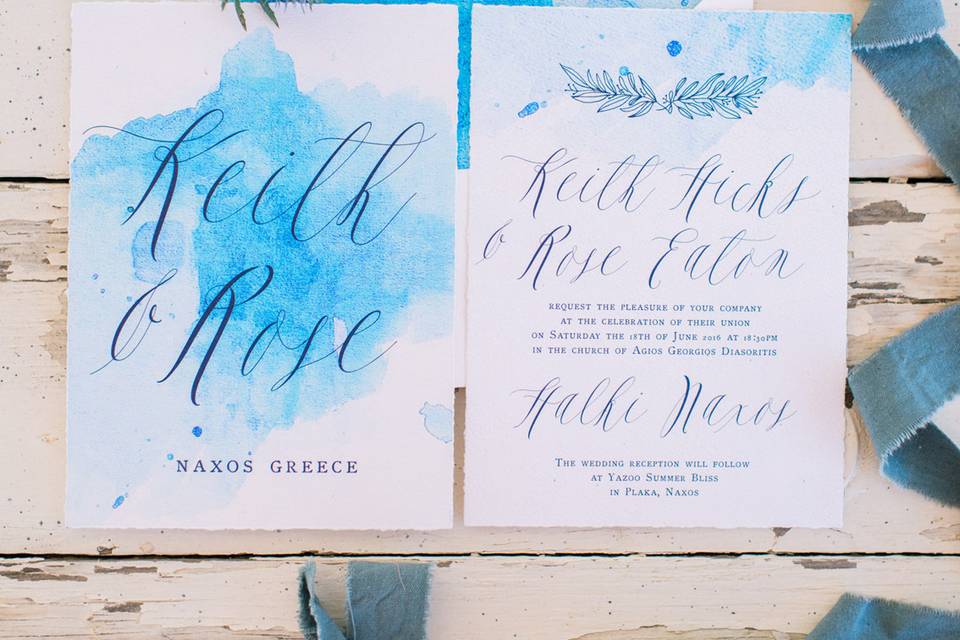 Keith
& Rose
NAXOS GREECE
Keith Hicks
& Rose Eaton
REQUEST THE PLEASURE OF YOUR COMPANY
AT THE CELEBRATION OF THEIR UNION
ON SATURDAY THE 18TH OF JUNE 2016 AT 18:30PM
IN THE CHURCH OF AGIOS GEORGIOS DIASORITIS
Halki Naxos
THE WEDDING RECEPTION WILL FOLLOW
AT YAZOO SUMMER BLISS
IN PLAKA, NAXOS